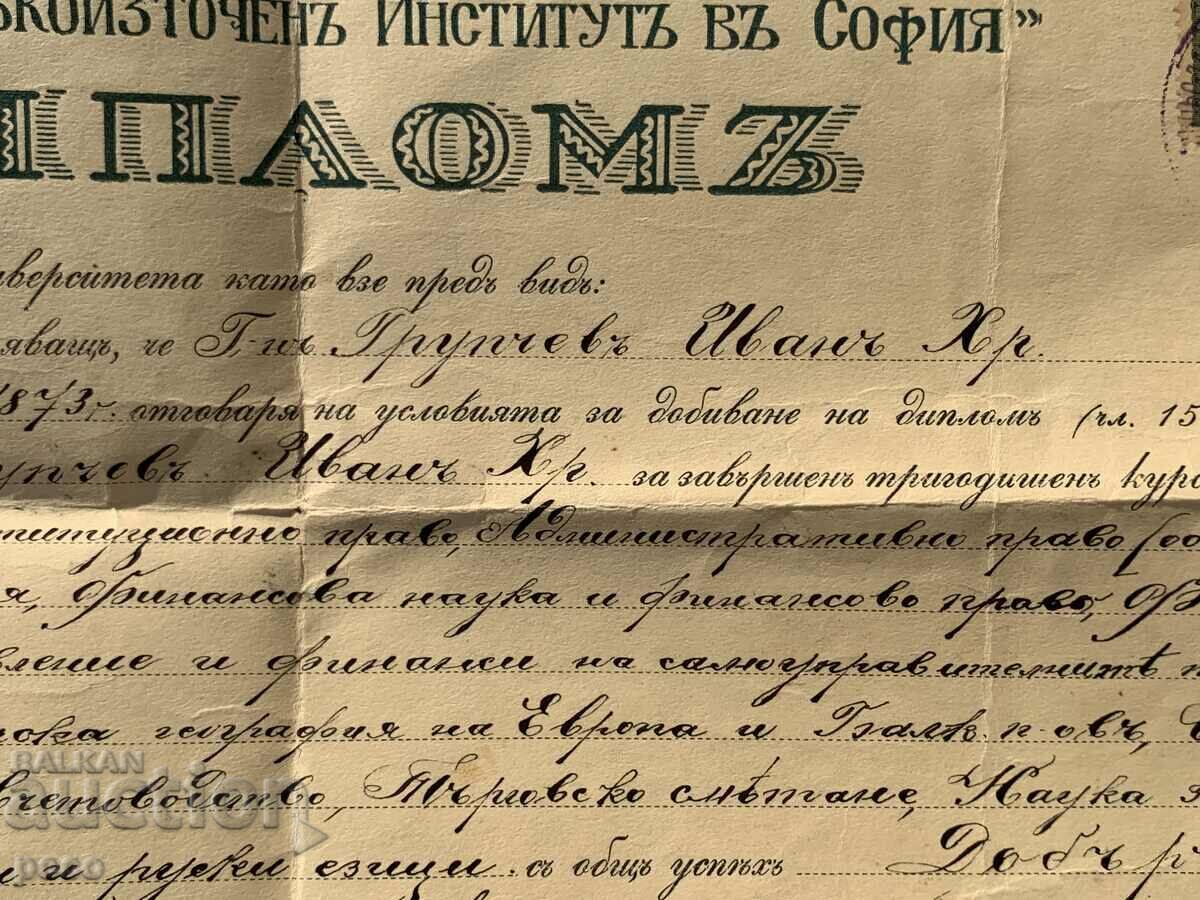 ЗКОИЗТОЧЕНЪ ИНСТИТУТЪ ВЪ СОФИЯ”
ИПЛОМЪ
иверситета като взе предъ видъ:
яващъ, че Г-нъ Групчевъ Иванъ Хр.
1873 г. отговаря на условията за добиване на дипломъ (чл. 15
упчевъ Иванъ Хр. за завършенъ тригодишенъ курс
титуционно право, Административно право (оо
я, Финансова наука и финансово право, Ф
вление и финанси на самоуправителнитѣ
география на Европа и Балк. п-овъ,
вчетоводство, Търговско смѣтане, Наука
и руски езици. съ общъ успѣхъ Добъръ
BALKAN
auction
peco